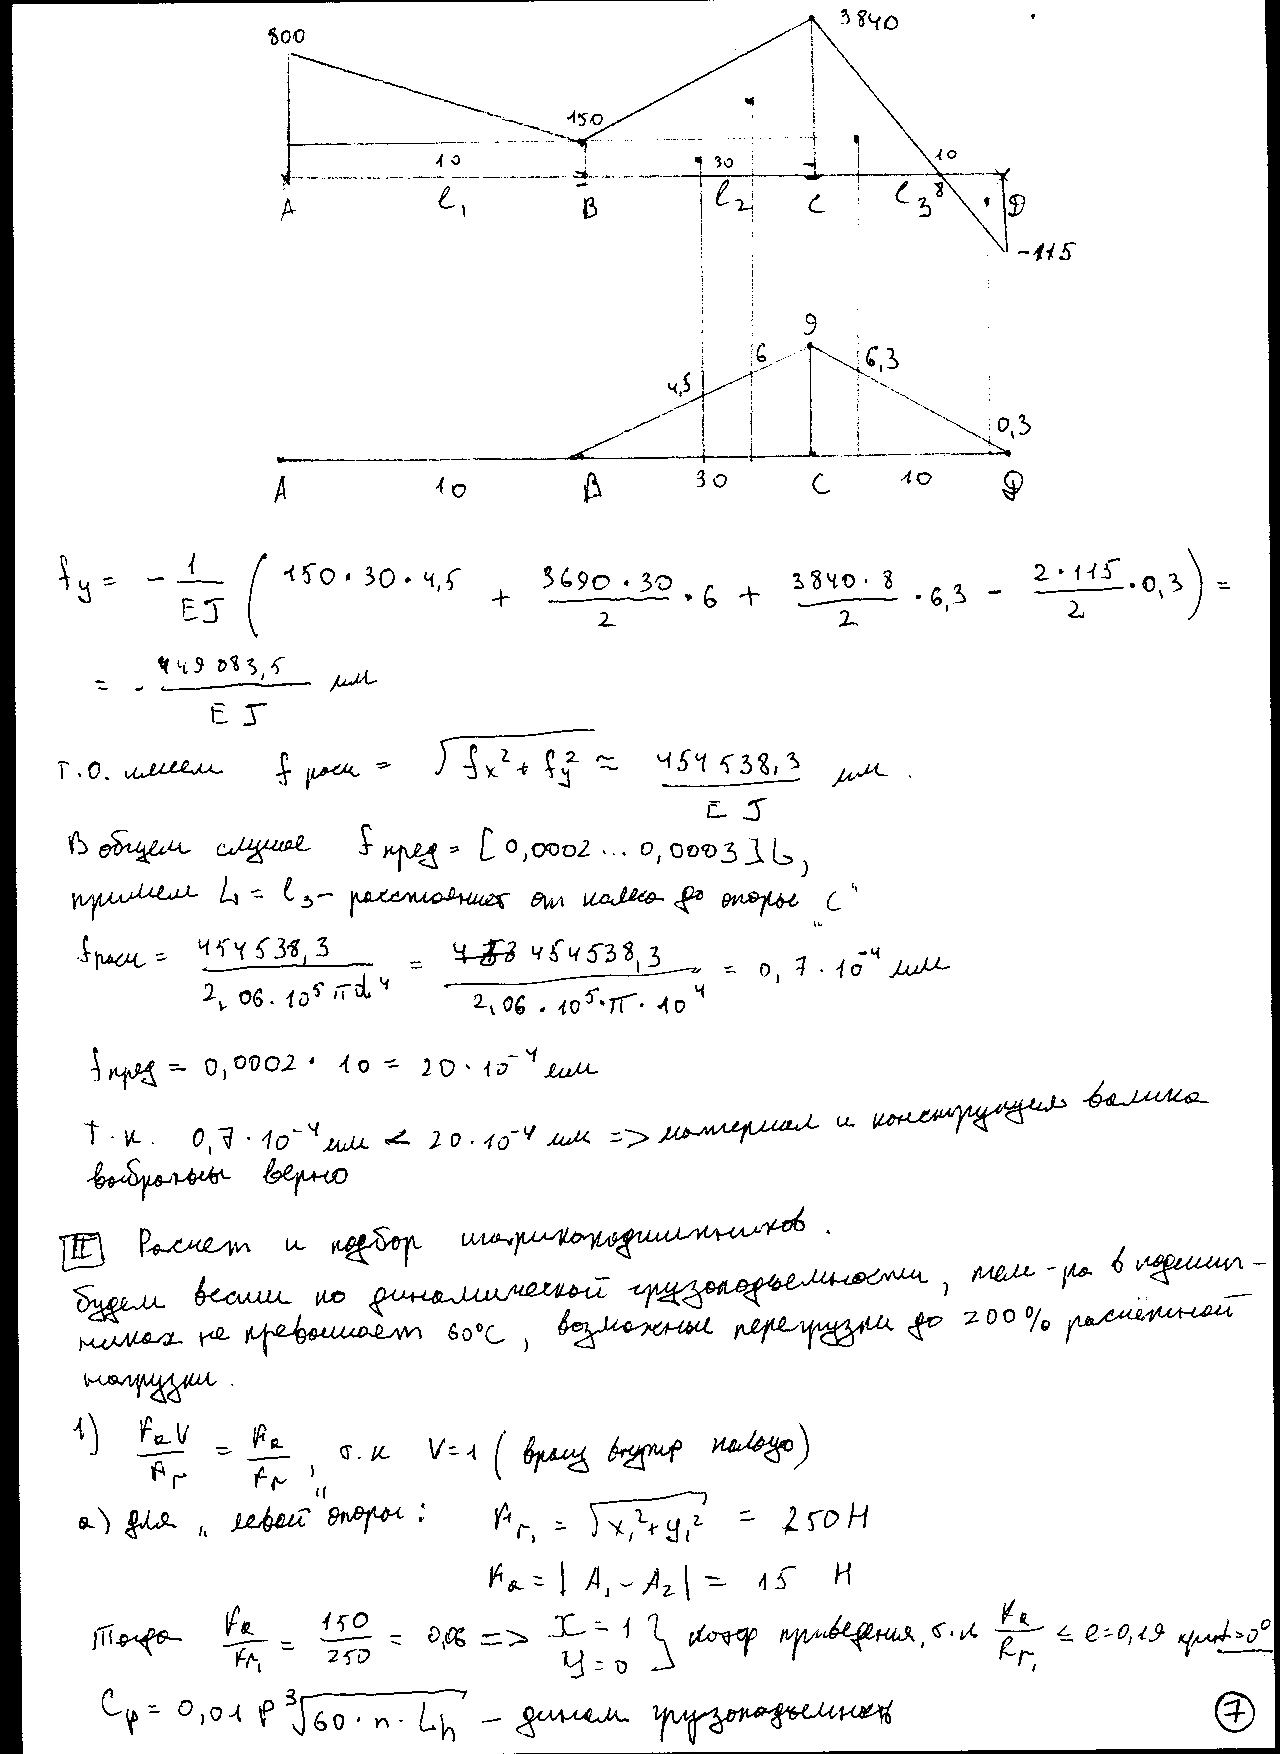 800
3840
150
10
30
10
8
A
l₁
B
l₂
C
l₃
D
-115
9
4,5
6
6,3
0,3
A
10
B
30
C
10
D
f y = - 1/EJ ( 150·30·4,5 + 3690·30/2 · 6 + 3840·8/2 · 6,3 - 2·115/2 · 0,3 ) =
= - 449083,5/EJ мм
т.о. имеем f расч = √(fx² + fy²) ≈ 454538,3/EJ мм.
В общем случае f пред = [0,0002...0,0003]L,
примем L = l₃ - расстояние от колеса до опоры "C"
f расч = 454538,3/(2,06·10⁵πd⁴) = 454538,3/(2,06·10⁵·π·10⁴) = 0,7·10⁻⁴ мм
f пред = 0,0002·10 = 20·10⁻⁴ мм
т.к. 0,7·10⁻⁴ мм < 20·10⁻⁴ мм => материал и конструкция валика
выбраны верно
II Расчет и подбор шарикоподшипников.
будем вести по динамической грузоподъемности, тем-ра в подшип-
никах не превышает 60°C, возможные перегрузки до 200% расчётной
нагрузки.
1) FaV/Fr = Fa/Fr, т.к V=1 (вращ внутр кольцо)
а) для "левой" опоры: Fr₁ = √(x₁²+y₁²) = 250 Н
Fa = |A₁ - A₂| = 15 Н
Тогда Fa/Fr₁ = 150/250 = 0,06 => X=1 Y=0 } коэф приведения, т.к Fa/Fr₁ ≤ e=0,19 при =0°
Cр = 0,01 P ³√(60·n·Lh) - динам грузоподъемность
7